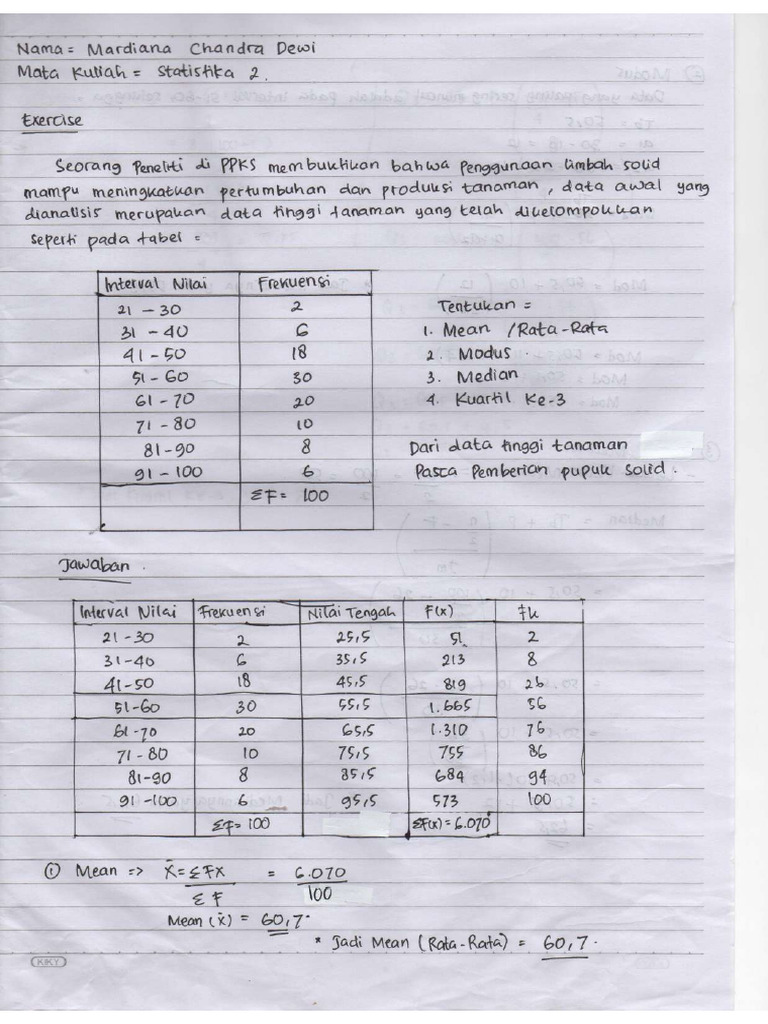 Nama = Mardiana Chandra Dewi
Mata Kuliah = Statistika 2.
Exercise
Seorang Peneliti di PPKS membuktikan bahwa penggunaan limbah solid
mampu meningkatkan pertumbuhan dan produksi tanaman, data awal yang
dianalisis merupakan data tinggi tanaman yang telah dikelompokkan
seperti pada tabel =
Interval Nilai Frekuensi
21 - 30 2 Tentukan =
31 - 40 6 1. Mean / Rata-Rata
41 - 50 18 2. Modus.
51 - 60 30 3. Median
61 - 70 20 4. Kuartil Ke-3
71 - 80 10
81-90 8 Dari data tinggi tanaman
91 - 100 6 Pasca Pemberian pupuk solid.
ΣF = 100
Jawaban.
Interval Nilai Frekuensi Nilai Tengah F(x) Fk
21 - 30 2 25,5 51 2
31-40 6 35,5 213 8
41-50 18 45,5 819 26
51-60 30 55,5 1.665 56
61-70 20 65,5 1.310 76
71 - 80 10 75,5 755 86
81-90 8 85,5 684 94
91 -100 6 95,5 573 100
ΣF = 100 ΣF(x) = 6.070
① Mean => X̄ = ΣFx = 6.070
ΣF 100
Mean (x̄) = 60,7.
* Jadi Mean (Rata-Rata) = 60,7.
KIKY